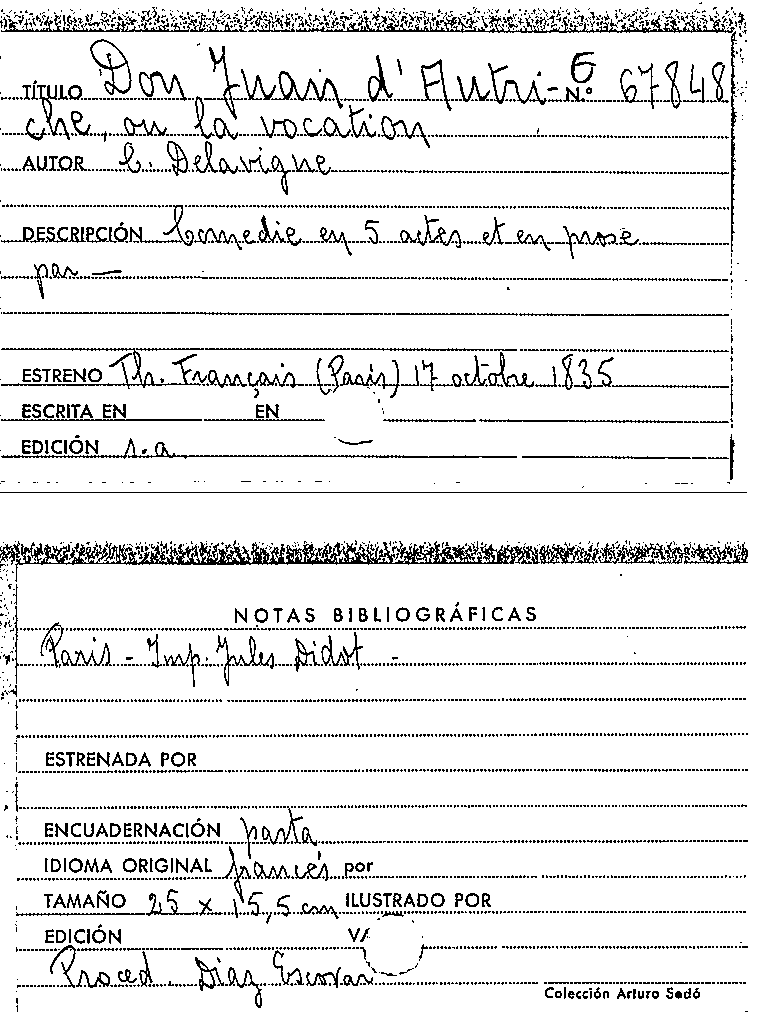 TÍTULO Don Juan d'Autri- N.º 67848
6
che, ou la vocation
AUTOR C. Delavigne
DESCRIPCIÓN Comedie en 5 actes et en prose
par —
ESTRENO Th. Français (Paris) 17 octobre 1835
ESCRITA EN EN
EDICIÓN s.a.
NOTAS BIBLIOGRÁFICAS
Paris - Imp. Jules Didot -
ESTRENADA POR
ENCUADERNACIÓN pasta
IDIOMA ORIGINAL francés por
TAMAÑO 25 x 15,5 cm ILUSTRADO POR
EDICIÓN
Proced. Diaz Escovar
Colección Arturo Sedó